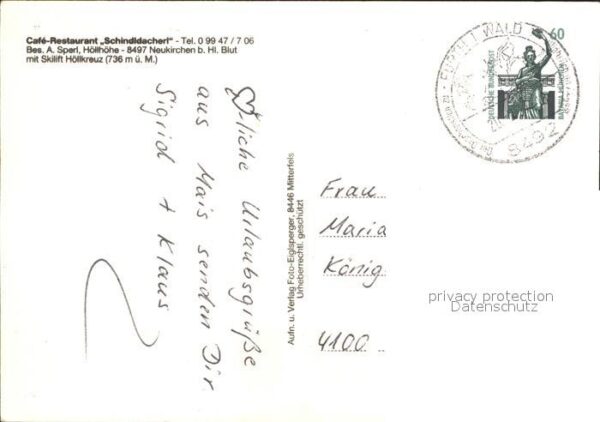 Café-Restaurant „Schindldacherl" - Tel. 0 99 47 / 7 06
Bes. A. Sperl, Höllhöhe - 8497 Neukirchen b. Hl. Blut
mit Skilift Höllkreuz (736 m ü. M.)
liche Urlaubsgrüße
aus Mais senden Dir
Sigrid + Klaus
Aufn. u. Verlag Foto-Eiglsperger, 8446 Mitterfels
Urheberrechtl. geschützt
WALD
8492
60
DEUTSCHE BUNDESPOST
BAVARIA MÜNCHEN
Frau
Maria
König
4100
privacy protection
Datenschutz